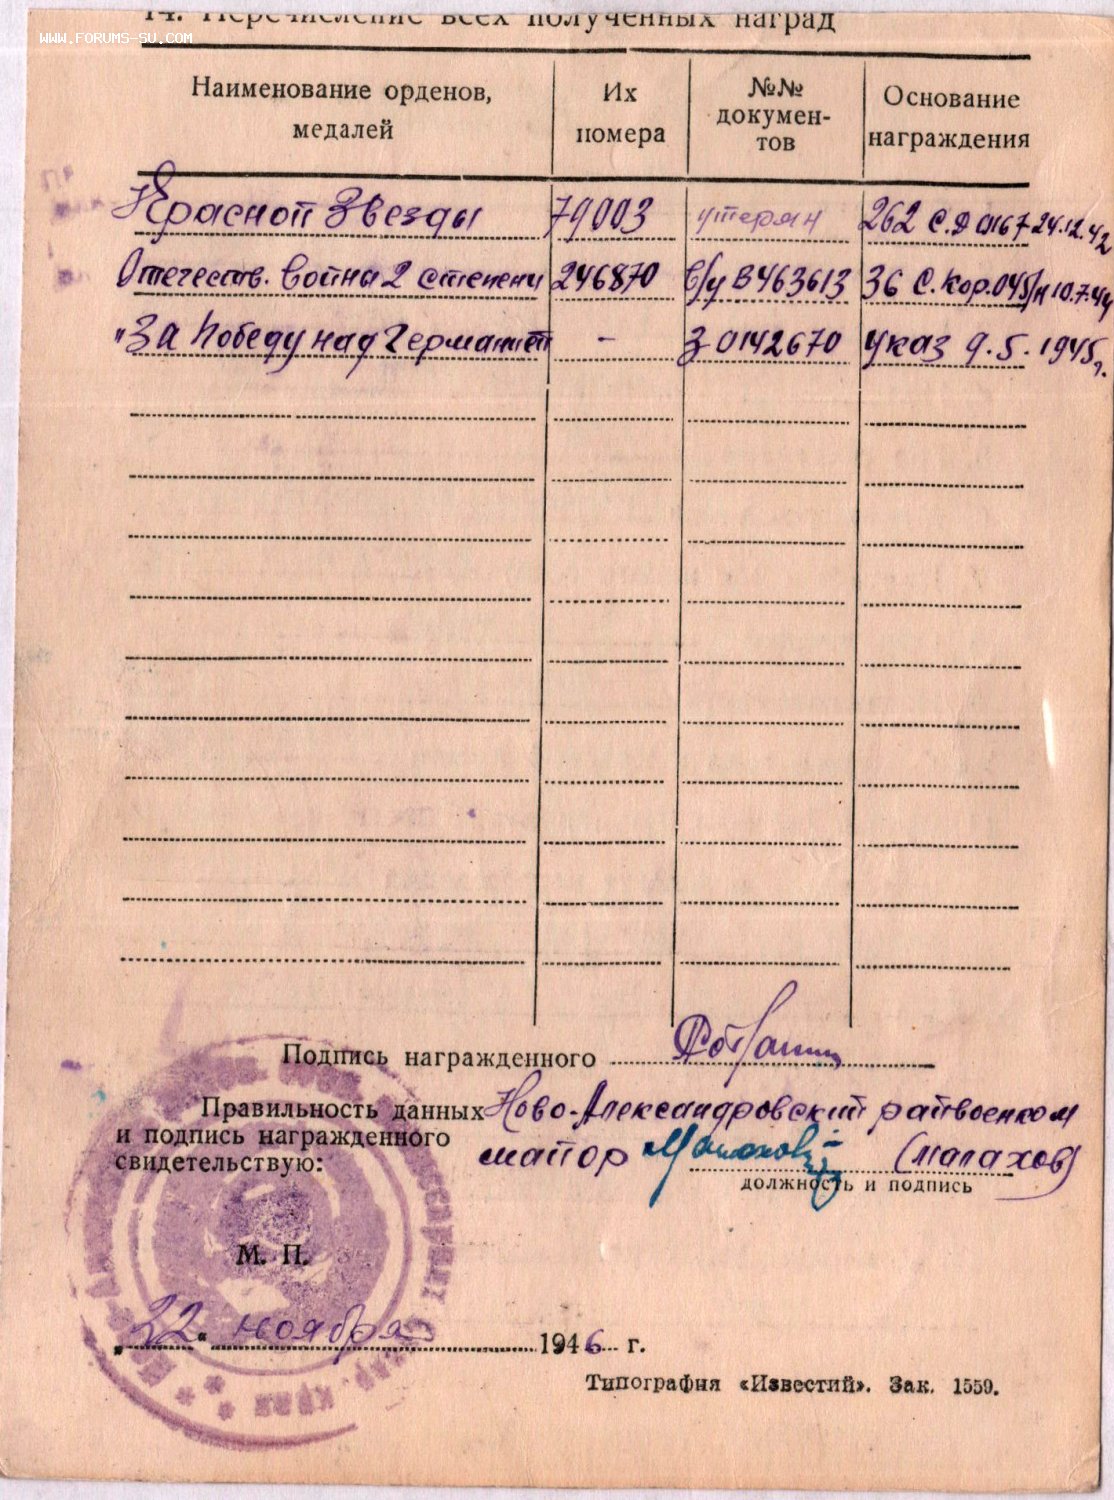 14. Перечисление всех полученных наград
WWW.FORUMS-SU.COM
Наименование орденов, медалей
Их номера
№№ докумен- тов
Основание награждения
Красной Звезды 79003 утерян 262 С.Д 0167 24.12.42
Отечеств. война 2 степени 246870 в/у В463613 36 С.Кор.045/н 10.7.44
"За победу над Германией - З 0142670 указ 9.5.1945г.
Подпись награжденного
Правильность данных Ново-Александровский райвоенком
и подпись награжденного
свидетельствую: майор Малахов (Малахов)
должность и подпись
М. П.
"22" ноября 1946 г.
Типография «Известий». Зак. 1559.